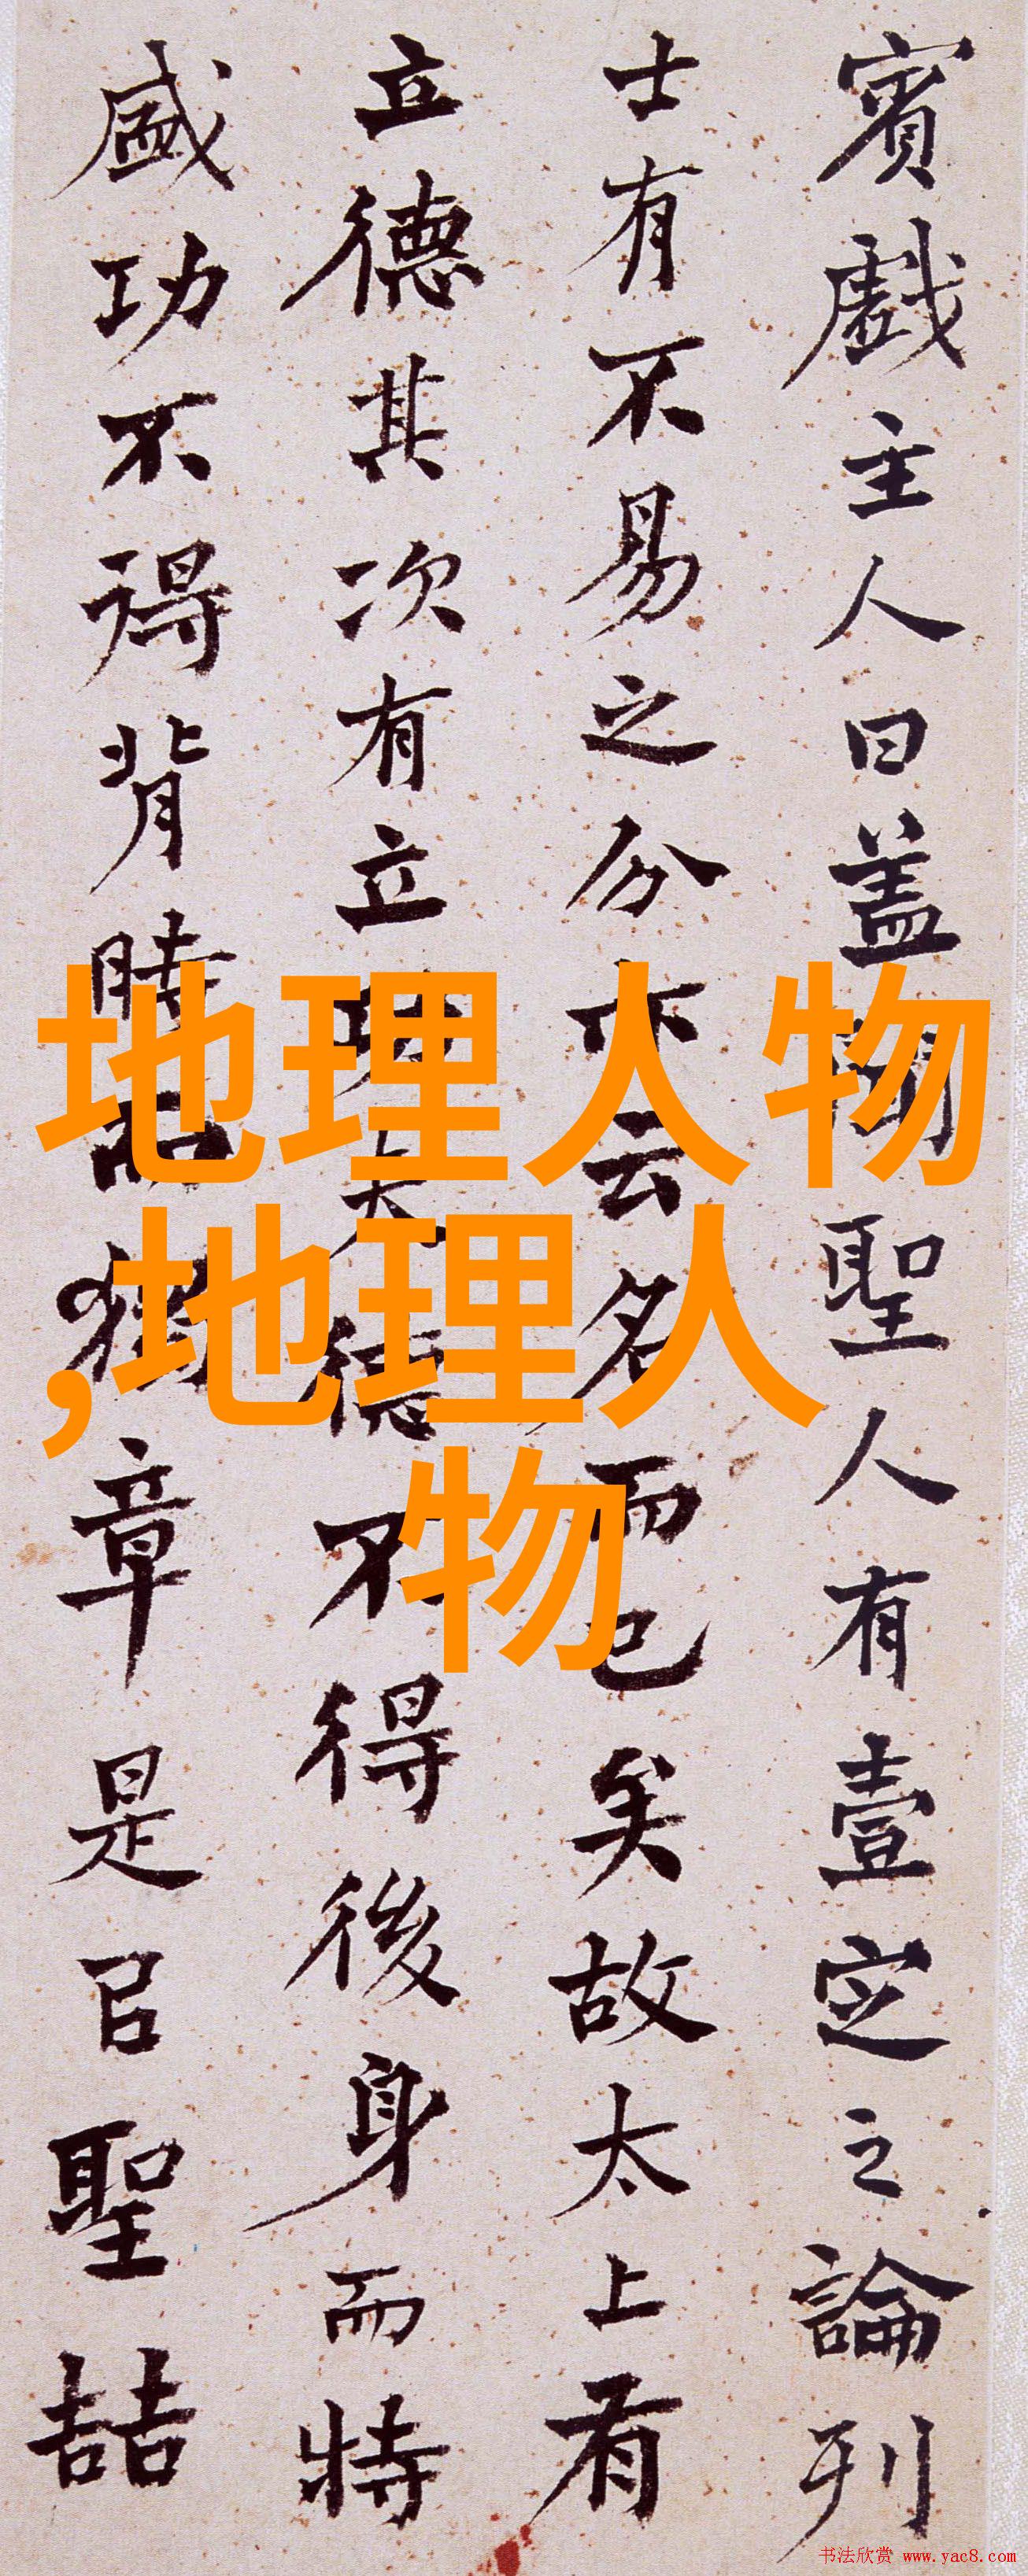 賓戲主人曰盖聞聖人有壹定之論列
士有不易之分亦云名而已矣故太上有
立德其次有立功夫德不得後身而特
盛功不得背時而獨章是㠯聖喆
地理人物
,地理人
物
书法欣赏 www.yac8.com